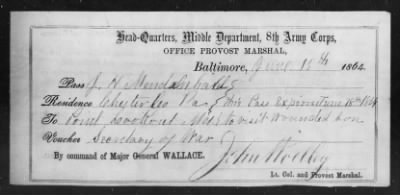 Head-Quarters, Middle Department, 8th Army Corps,
OFFICE PROVOST MARSHAL,
Baltimore, June 15th 1864
Pass J. H. Mendenhall
Residence Chester Co Pa. This Pass Expires June 18th 1864
To Point Lookout Md. to visit wounded son
Voucher Secretary of War
By command of Major General WALLACE.
John Woolley
Lt. Col. and Provost Marshal.